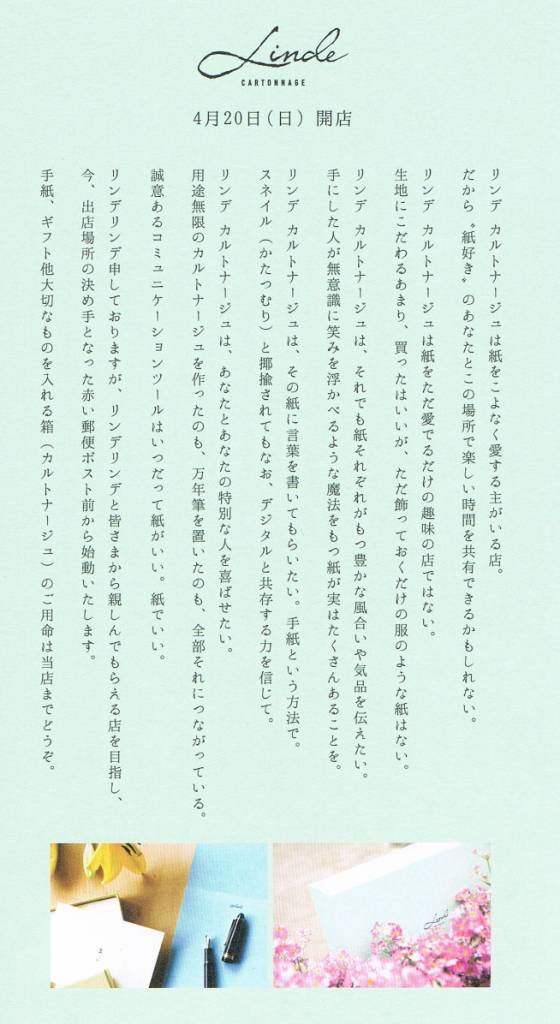 Linde
CARTONNAGE
4月20日(日) 開店
リンデ カルトナージュは紙をこよなく愛する主がいる店。
だから〝紙好き〟のあなたとこの場所で楽しい時間を共有できるかもしれない。
リンデ カルトナージュは紙をただ愛でるだけの趣味の店ではない。
生地にこだわるあまり、買ったはいいが、ただ飾っておくだけの服のような紙はない。
リンデ カルトナージュは、それでも紙それぞれがもつ豊かな風合いや気品を伝えたい。
手にした人が無意識に笑みを浮かべるような魔法をもつ紙が実はたくさんあることを。
リンデ カルトナージュは、その紙に言葉を書いてもらいたい。手紙という方法で。
スネイル（かたつむり）と揶揄されてもなお、デジタルと共存する力を信じて。
リンデ カルトナージュは、あなたとあなたの特別な人を喜ばせたい。
用途無限のカルトナージュを作ったのも、万年筆を置いたのも、全部それにつながっている。
誠意あるコミュニケーションツールはいつだって紙がいい。紙でいい。
リンデリンデ申しておりますが、リンデリンデと皆さまから親しんでもらえる店を目指し、
今、出店場所の決め手となった赤い郵便ポスト前から始動いたします。
手紙、ギフト他大切なものを入れる箱（カルトナージュ）のご用命は当店までどうぞ。
Linde